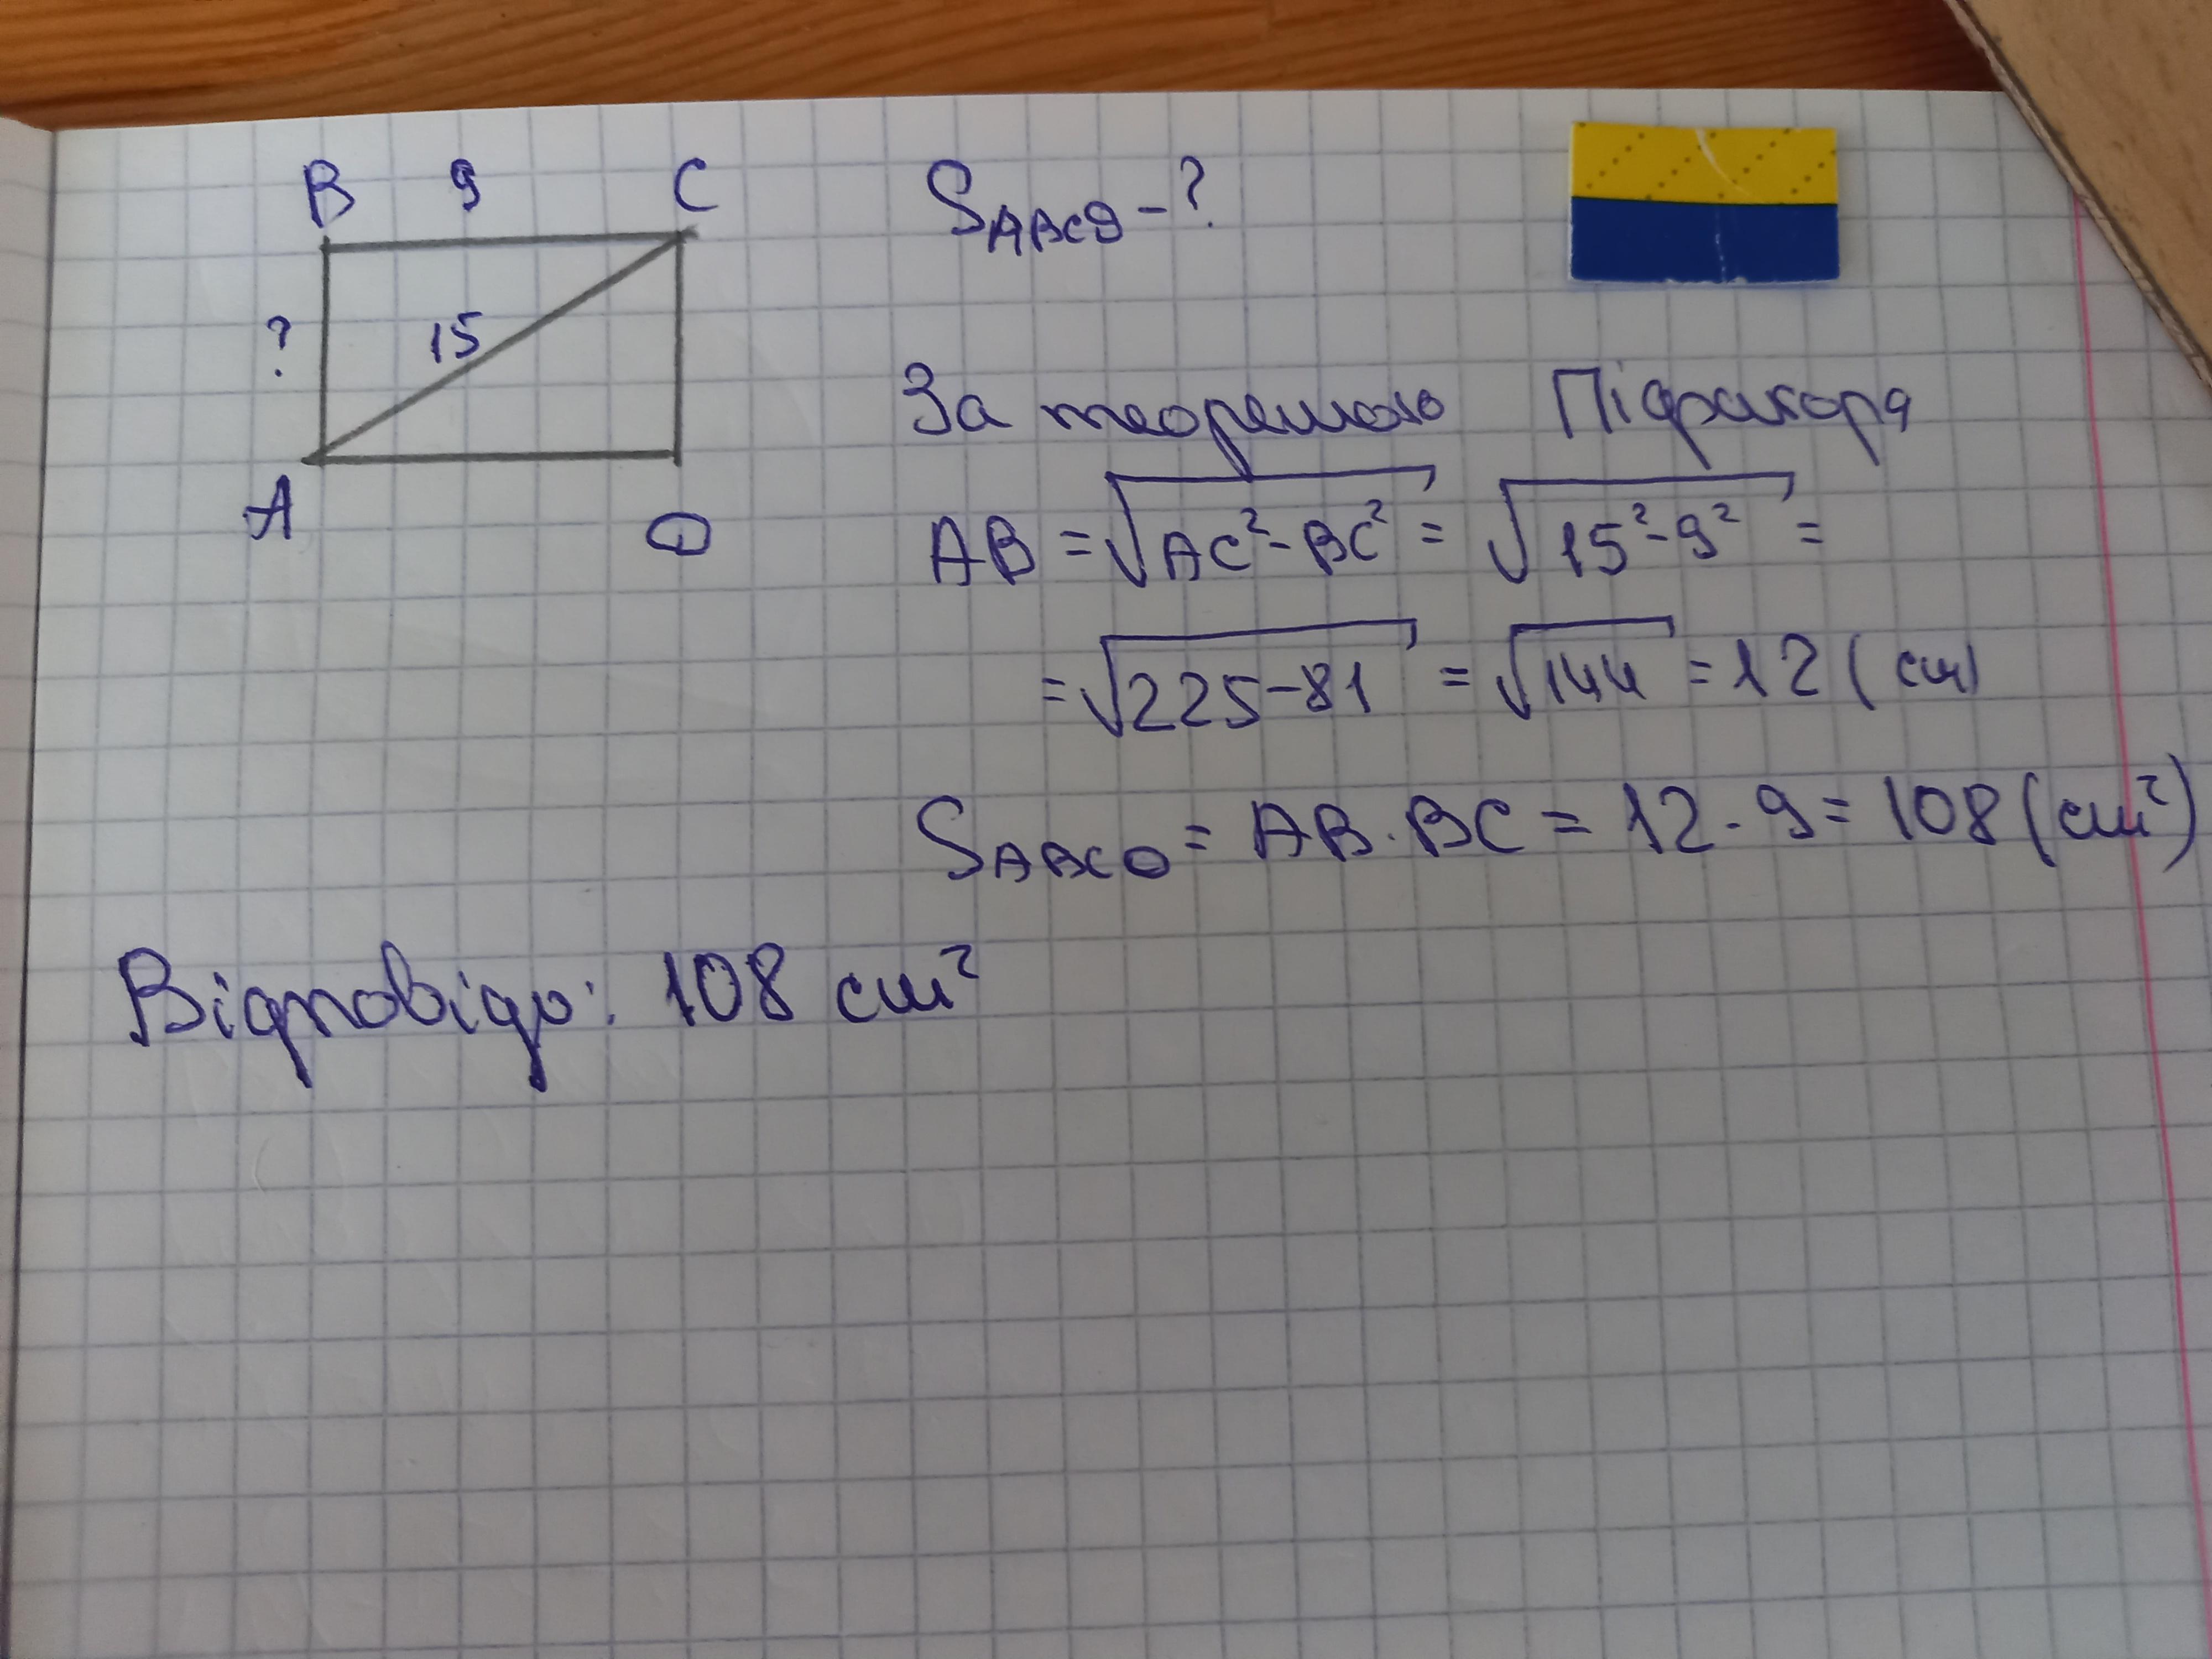 B 9 C
S_ABCD - ?
? 15
A D
За теоремою Піфагора
AB = √(AC² - BC²) = √(15² - 9²) =
= √(225 - 81) = √144 = 12 (см)
S_ABCD = AB · BC = 12 · 9 = 108 (см²)
Відповідь: 108 см²